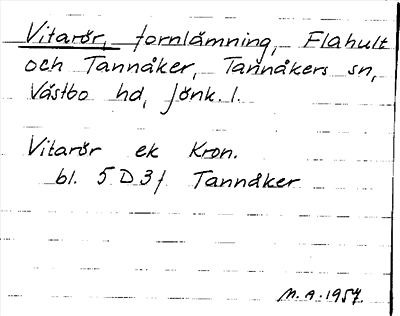 Vitarör, fornlämning, Flahult
och Tannåker, Tannåkers sn,
Västbo hd, Jönk. l.
Vitarör ek Kron.
bl. 5 D 3 f Tannåker
M.A. 1957.